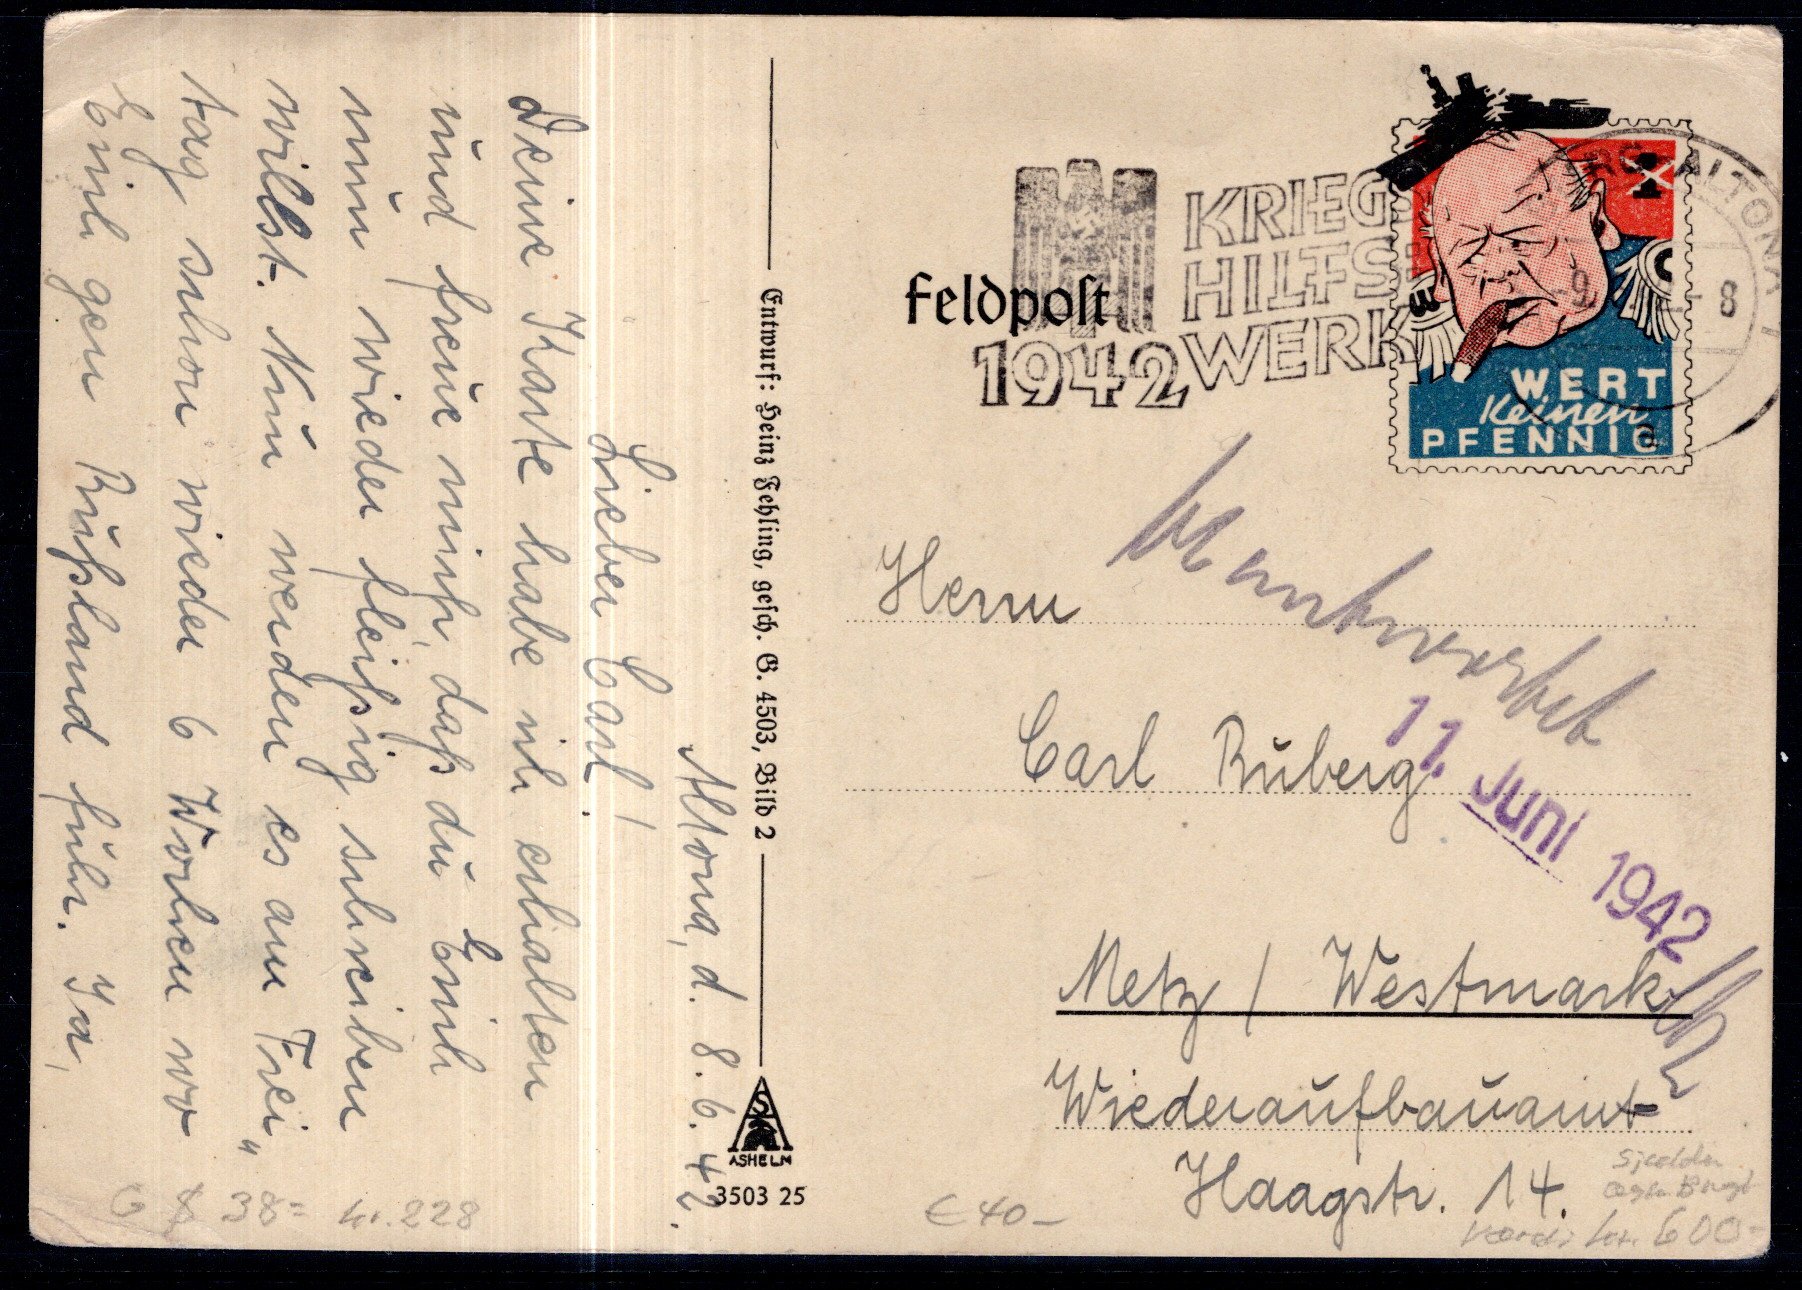 Altona, d. 8.6.42.
Lieber Carl!
Deine Karte habe ich erhalten
und freue mich, daß du Emil
nun wieder fleißig schreiben
willst. Nun werden es am Frei„
tag schon wieder 6 Wochen wo
Emil gen Rußland fuhr. Ja,
Entwurf: Heinz Fehling, gesch. G. 4503, Bild 2
ASHELM
3503 25
Feldpost
1942
KRIEGS
HILFS
WERK
ALTONA 1
9
8
a
1
WERT
keinen
PFENNIG
Herrn
Carl Ruberg
Metz / Westmark
Wiederaufbauamt
Haagstr. 14.
11. Juni 1942
38=
kr. 228
€ 40-
Sjælden
kr. 600-